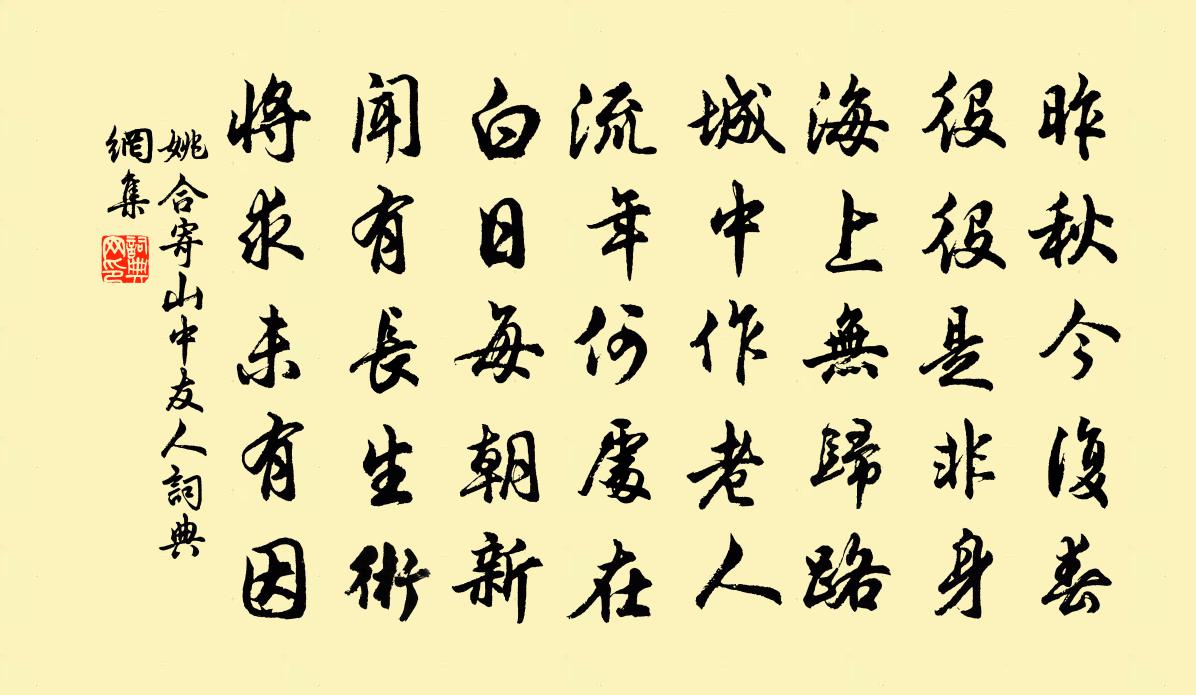 昨秋今復春
役役是非身
海上無歸路
城中作老人
流年何處在
白日每朝新
聞有長生術
將求未有因
姚合寄山中友人詞典
網集
詞典
网印